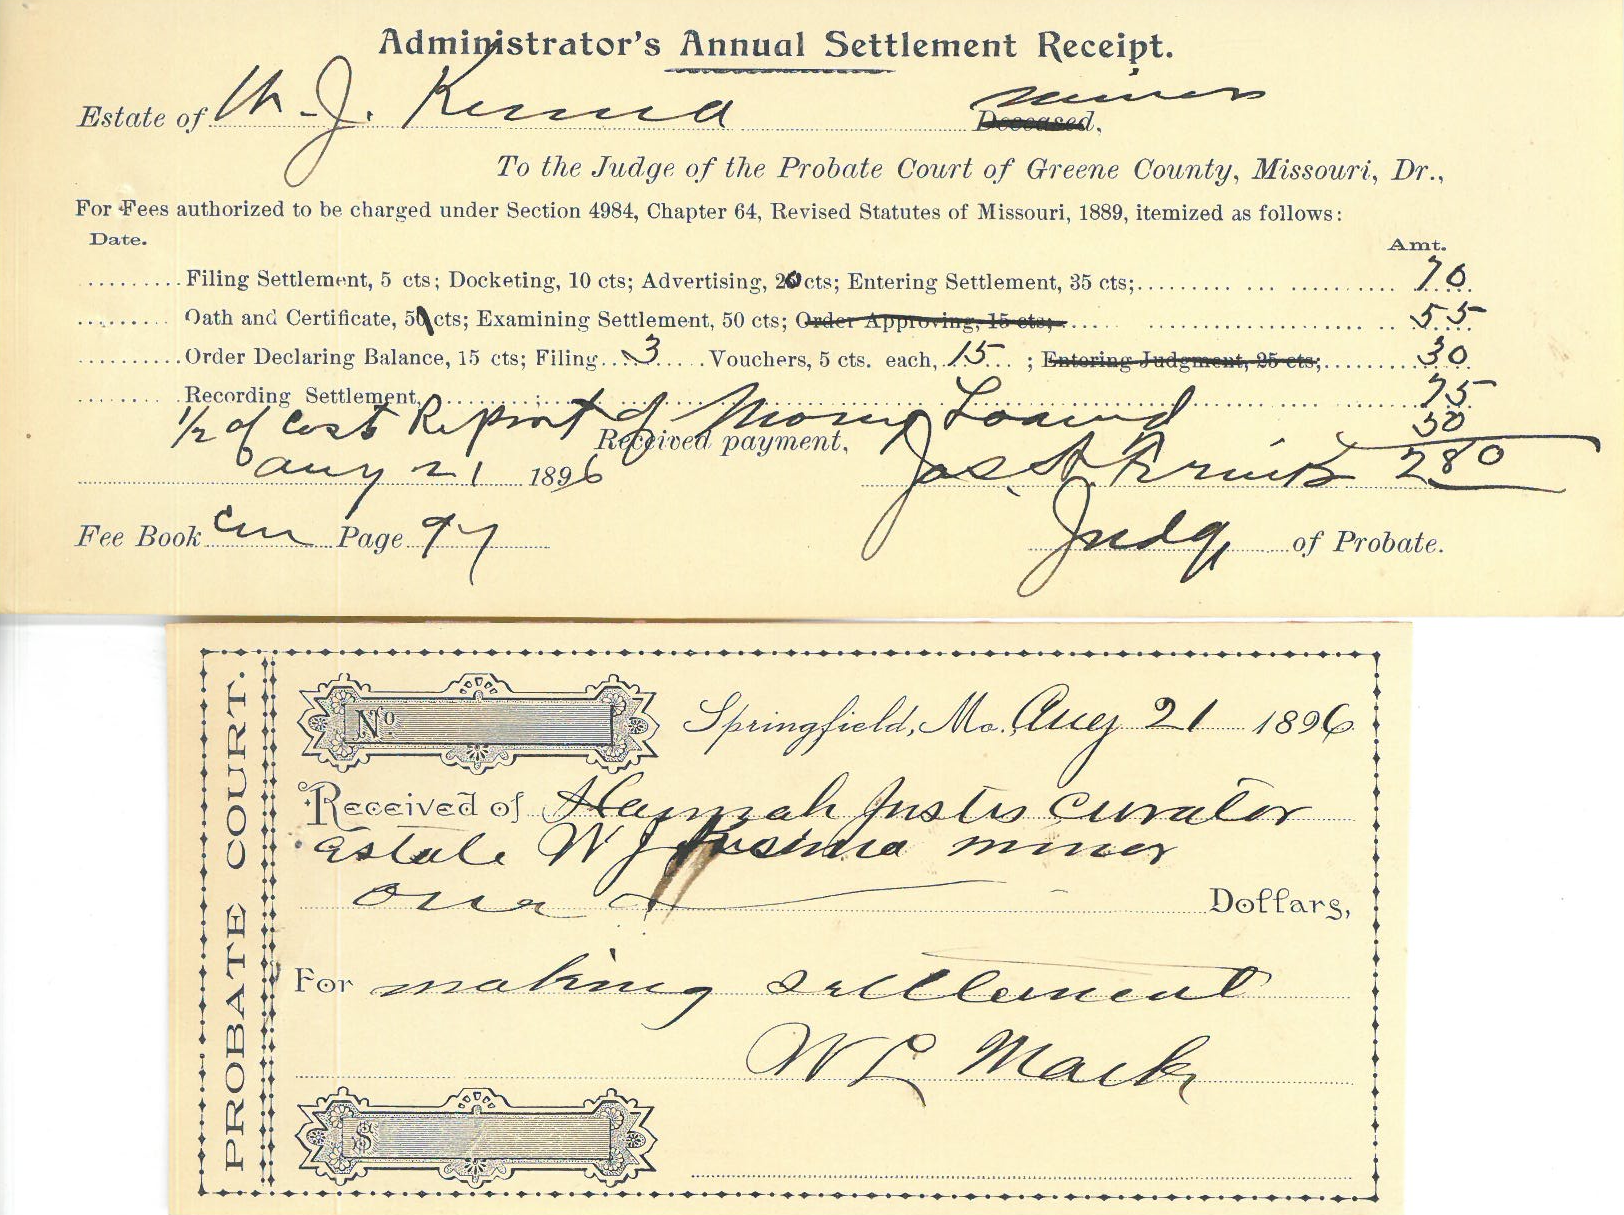 Administrator's Annual Settlement Receipt.
Estate of W. J. minor
Deceased.
To the Judge of the Probate Court of Greene County, Missouri, Dr.,
For Fees authorized to be charged under Section 4984, Chapter 64, Revised Statutes of Missouri, 1889, itemized as follows:
Date. Amt.
Filing Settlement, 5 cts; Docketing, 10 cts; Advertising, 20 cts; Entering Settlement, 35 cts; 70
Oath and Certificate, 5 cts; Examining Settlement, 50 cts; Order Approving, 15 cts; 55
Order Declaring Balance, 15 cts; Filing 3 Vouchers, 5 cts. each, 15 ; Entering Judgment, 25 cts; 30
Recording Settlement, 75
1/2 of Cost Report of Money Loaned 50
Received payment,
Aug 21 1896 Jas. 2 80
Fee Book Page 97 Judge of Probate.
PROBATE COURT.
No. Springfield, Mo. Aug 21 1896
Received of Hannah Justis curator
Estate W J minor
One Dollars,
For making settlement
W L Mack
$